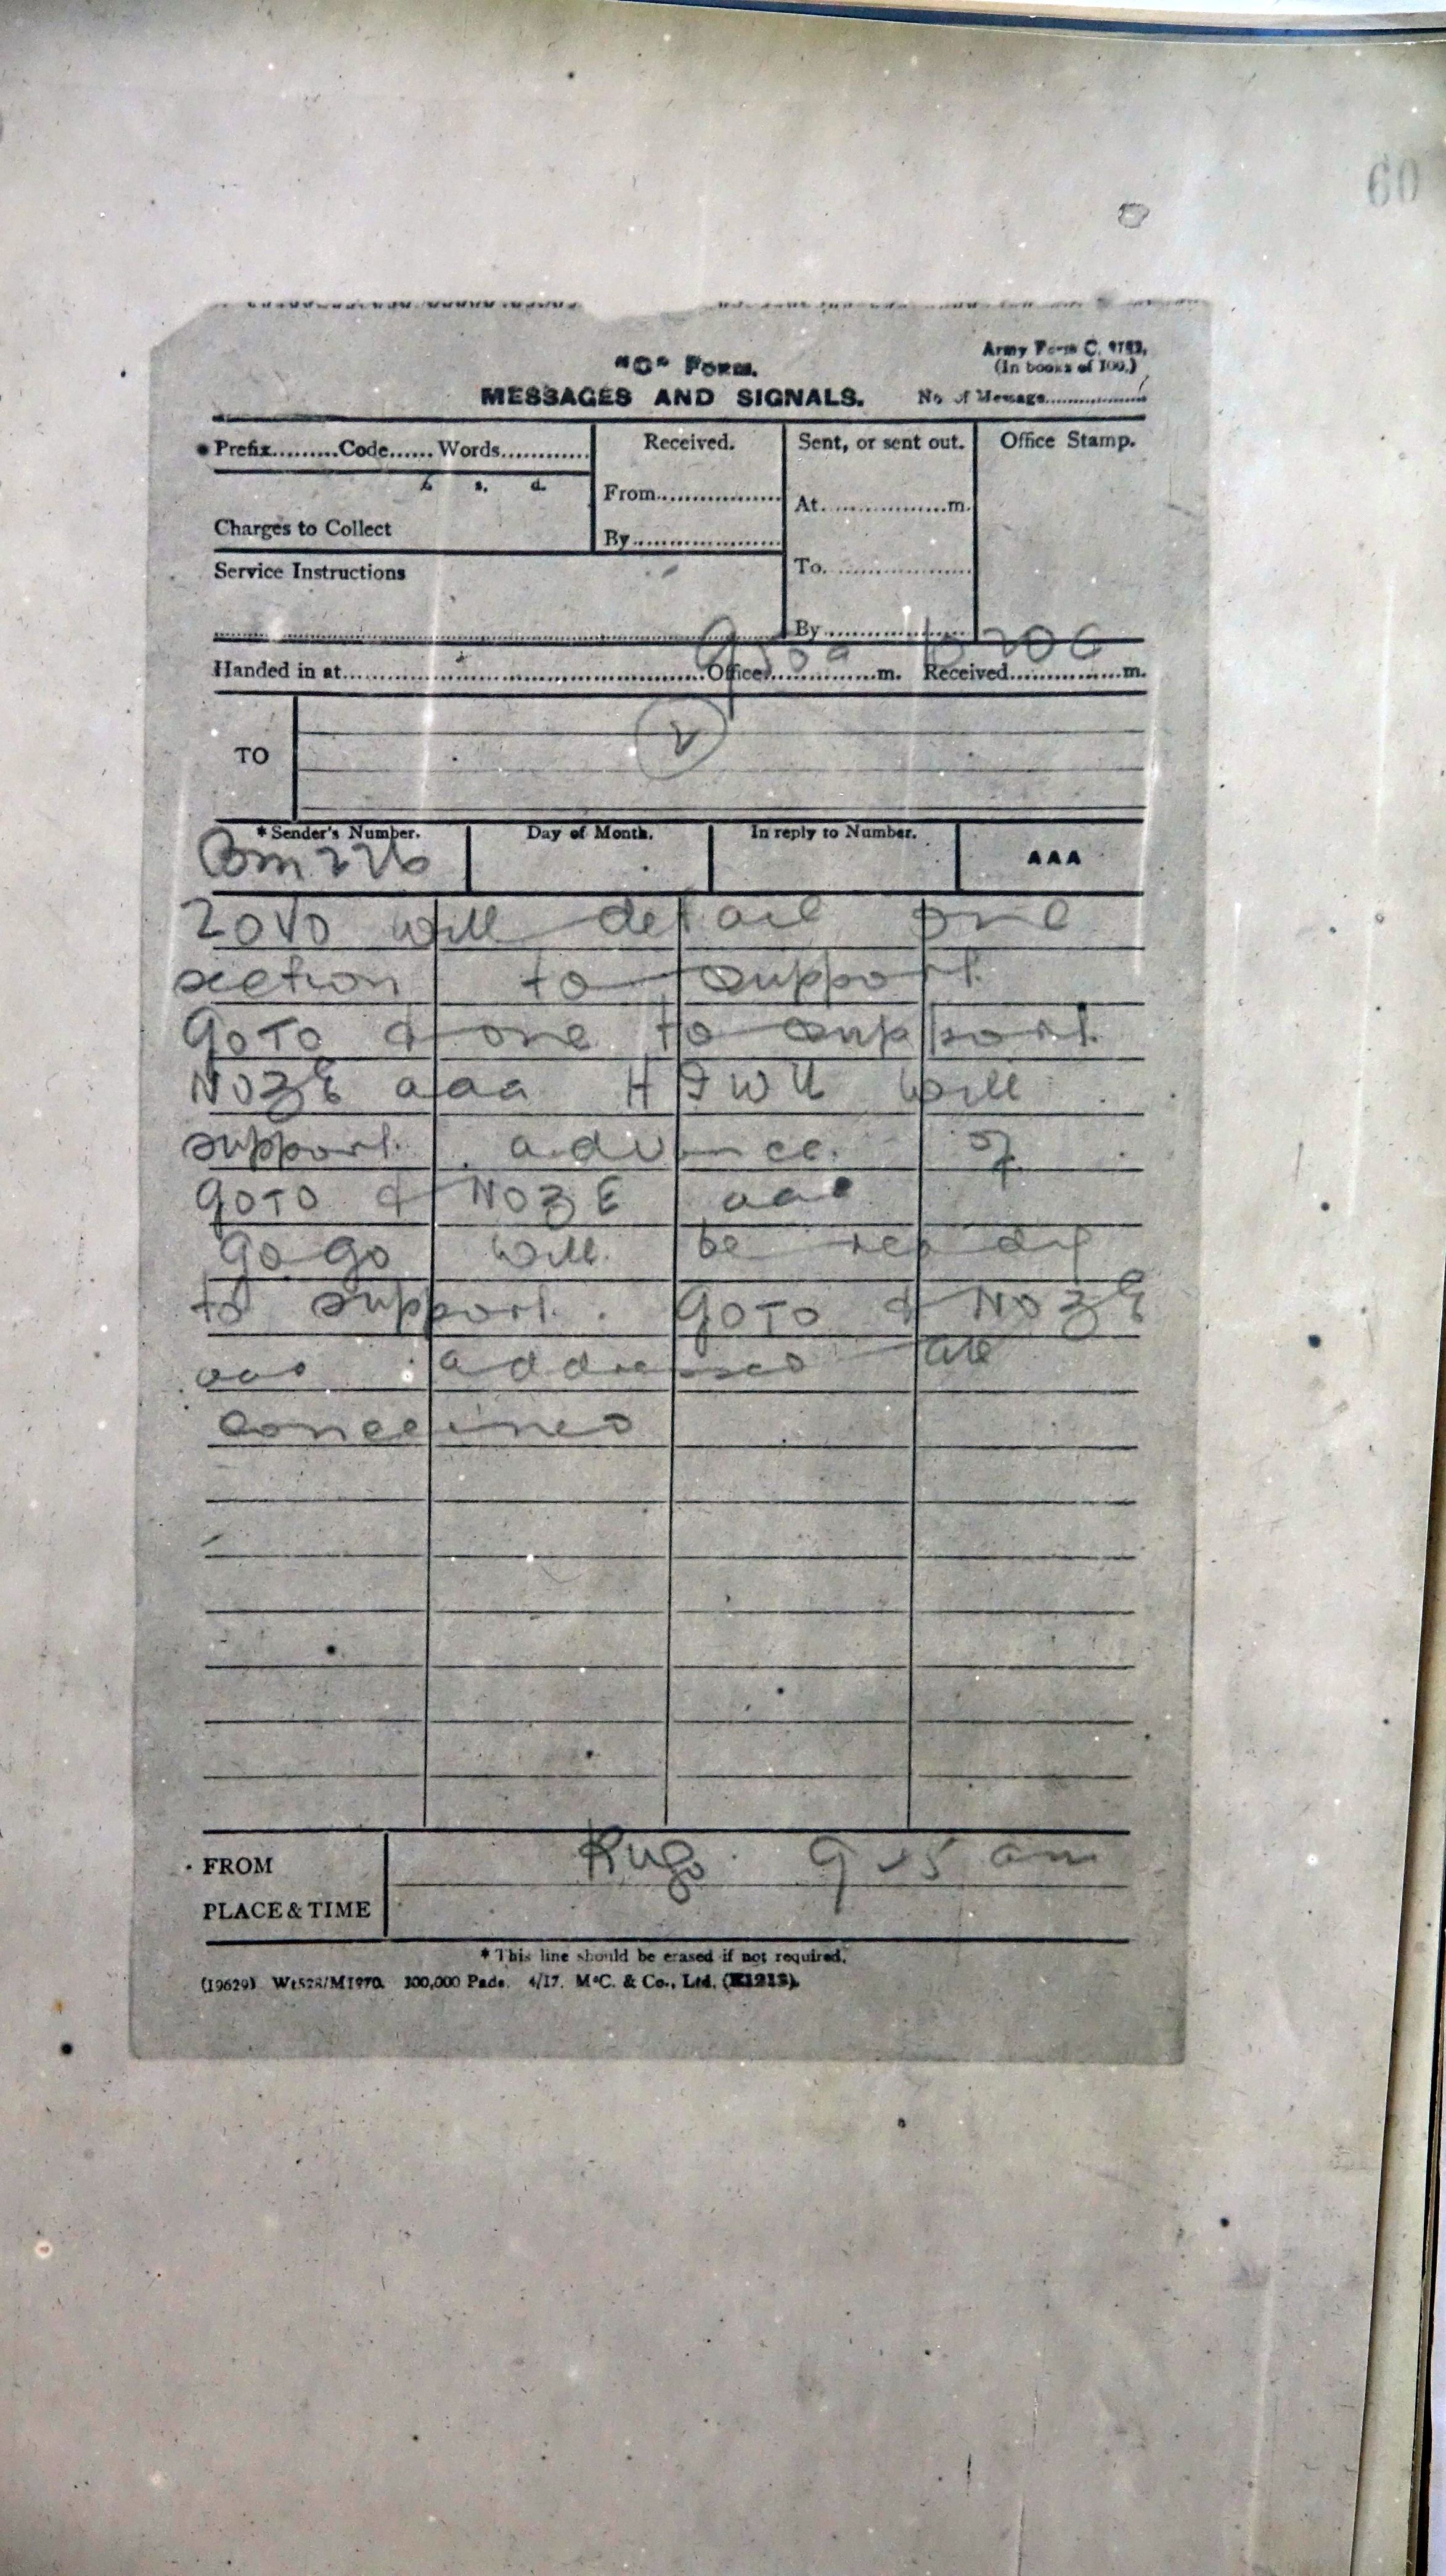 60
"C" Form.
Army Form C. 2123.
(In books of 100.)
MESSAGES AND SIGNALS.
No. of Message
Prefix.........Code......Words............
Received.
Sent, or sent out.
Office Stamp.
£ s. d.
From
At................m.
Charges to Collect
By
Service Instructions
To
By
Handed in at Office m. Received m.
TO
2
* Sender's Number.
Day of Month.
In reply to Number.
AAA
Bm 226
ZOVO will detail one
section to support
GOTO & one to support
NOZE aaa will
support advance of
GOTO & NOZE aaa
GOGO will be ready
to support GOTO & NOZE
aaa addressed all
concerned
FROM
Kugo 9.15 am
PLACE & TIME
* This line should be erased if not required.
(19629) Wt528/M1970. 300,000 Pads. 4/17. McC. & Co., Ltd. (E1213).